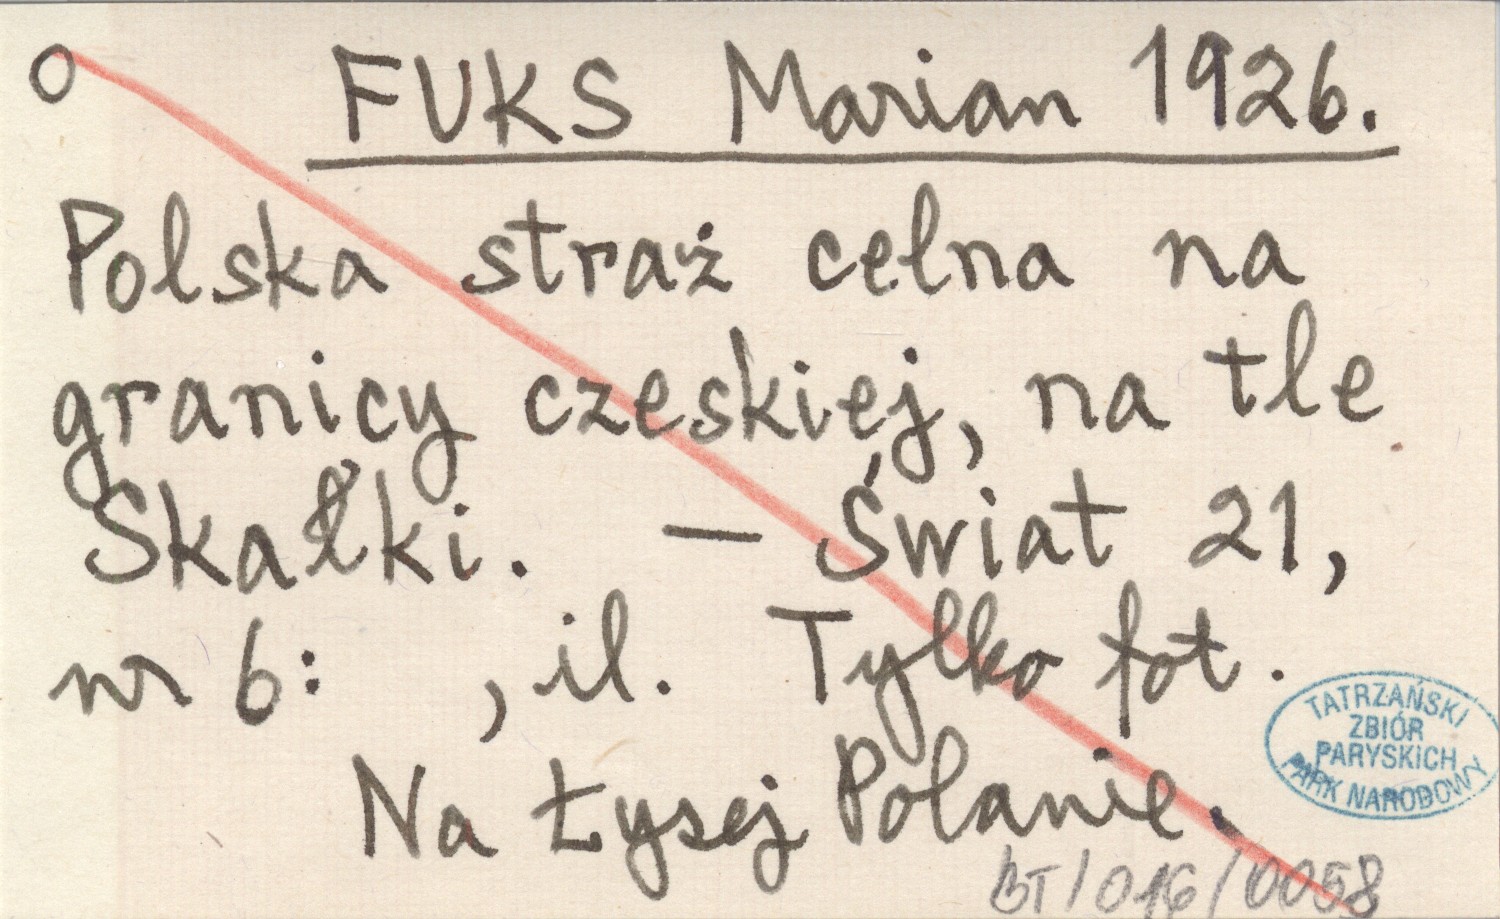 O FUKS Marian 1926.
Polska straż celna na
granicy czeskiej, na tle
Skałki. — Świat 21,
nr 6: , il. Tylko fot.
Na Łysej Polanie.
TATRZAŃSKI
ZBIÓR
PARYSKICH
PARK NARODOWY
BT/016/0058